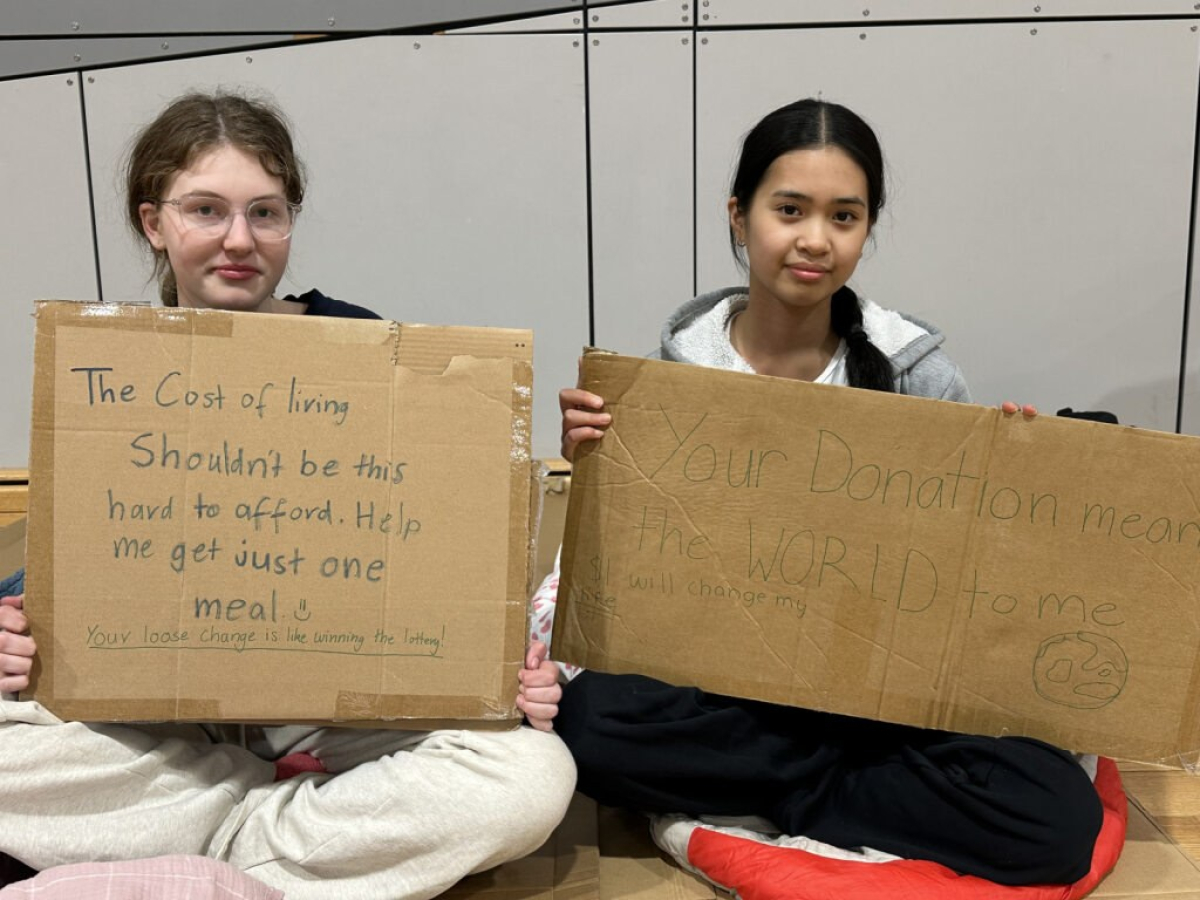 The Cost of living
Shouldn't be this
hard to afford. Help
me get just one
meal. :)
Your loose change is like winning the lottery!
Your Donation mean
the WORLD to me
$1 will change my
life